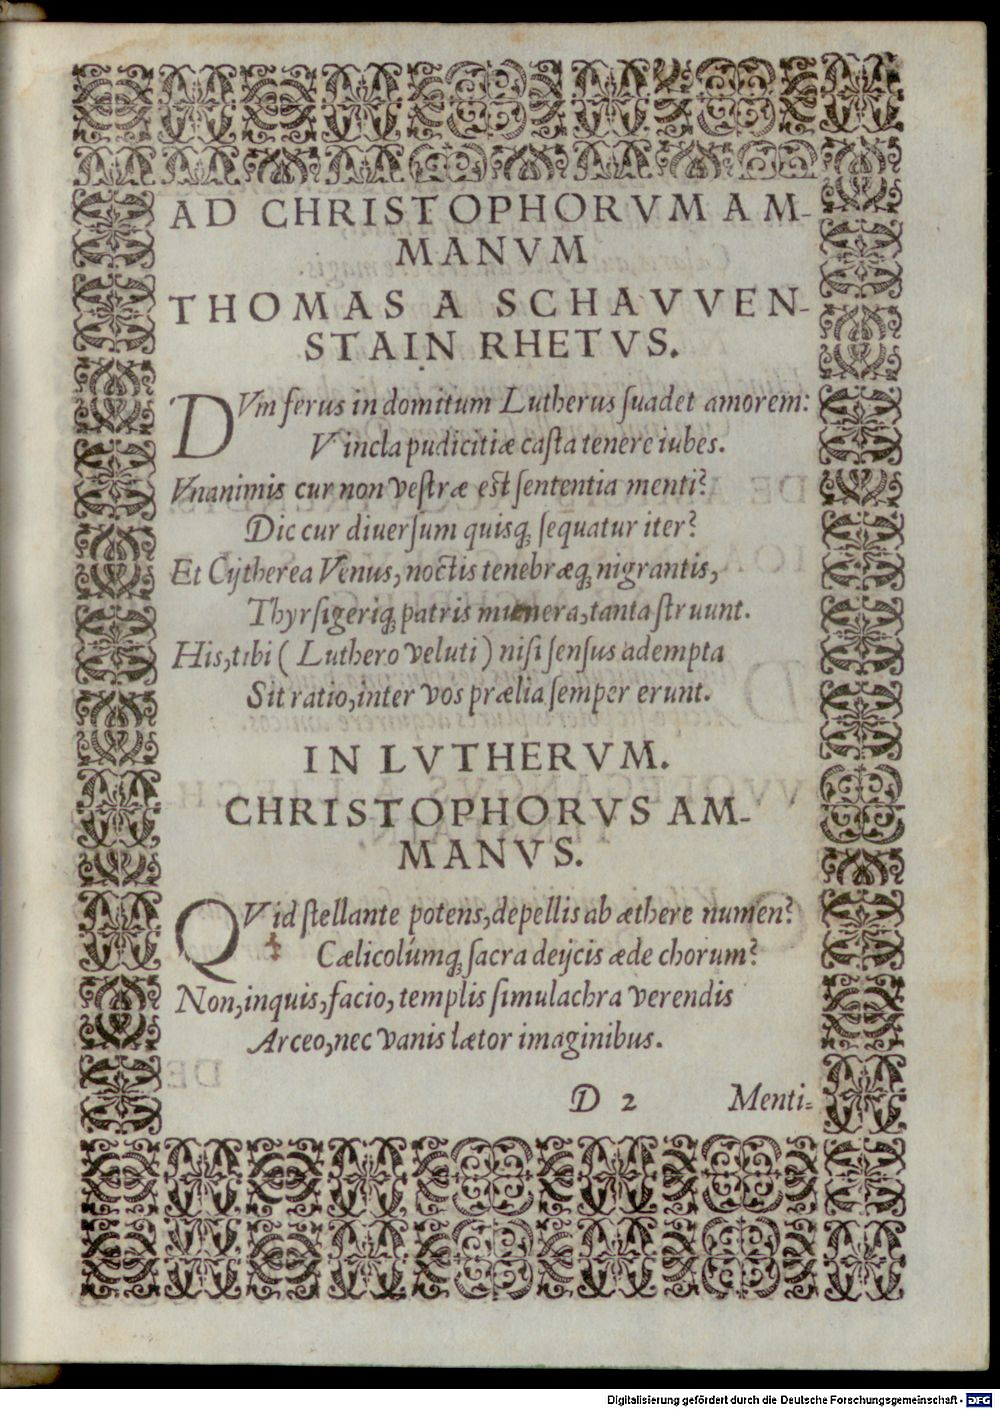 AD CHRISTOPHORVM AM-
MANVM
THOMAS A SCHAVVEN-
STAIN RHETVS.
DVm ferus indomitum Lutherus ſuadet amorem:
Vincla pudicitiæ caſta tenere iubes.
Vnanimis cur non veſtræ eſt ſententia menti?
Dic cur diuerſum quisq; ſequatur iter?
Et Cytherea Venus, noctis tenebræq; nigrantis,
Thyrſigeriq; patris munera, tanta ſtruunt.
His, tibi ( Luthero veluti ) niſi ſenſus adempta
Sit ratio, inter vos prælia ſemper erunt.
IN LVTHERVM.
CHRISTOPHORVS AM-
MANVS.
QVid ſtellante potens, depellis ab æthere numen?
Cælicolúmq; ſacra deijcis æde chorum?
Non, inquis, facio, templis ſimulachra verendis
Arceo, nec vanis lætor imaginibus.
D 2 Menti-
Digitalisierung gefördert durch die Deutsche Forschungsgemeinschaft - DFG